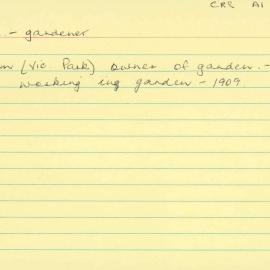 CRS A1
. - gardener
(Vic. Park) owner of garden. -
working in garden - 1909.